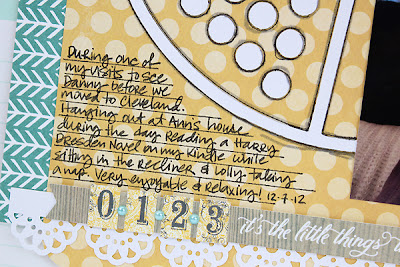 During one of
my visits to see
Danny before we
moved to Cleveland.
Hanging out at Ann's house
during the day reading a Harry
Dresden Novel on my Kindle while
sitting in the Recliner & Lolly taking
a nap. Very enjoyable & relaxing! 12.7.12
0 1 2 3
it's the little things